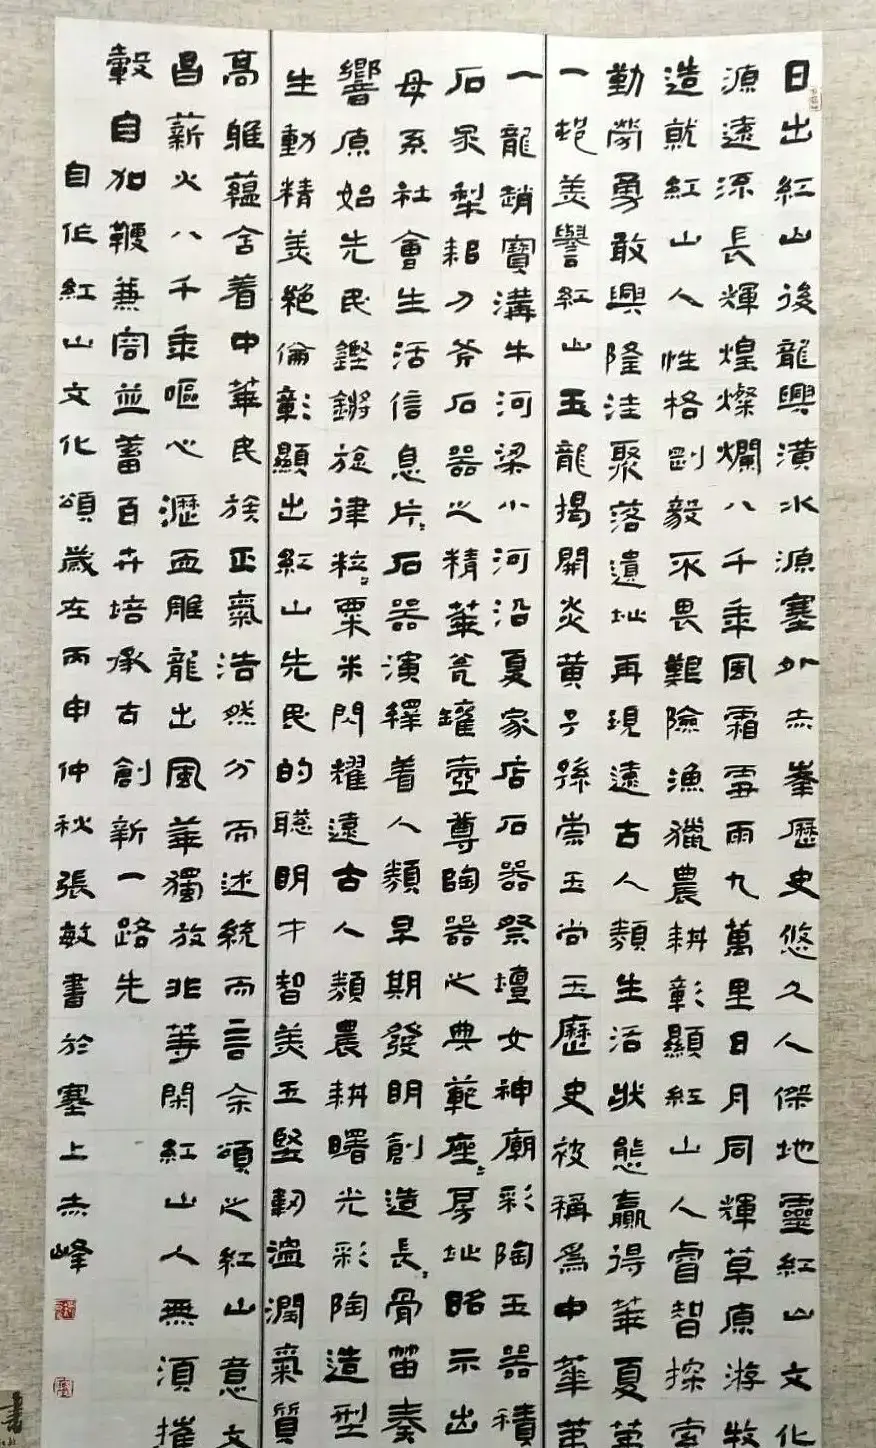 日出紅山後龍興潢水源塞外赤峯歷史悠久人傑地靈紅山文化
源遠流長輝煌燦爛八千年風霜雪雨九萬里日月同輝草原游牧
造就紅山人性格剛毅不畏艱險漁獵農耕彰顯紅山人睿智探索
勤勞勇敢興隆洼聚落遺址再現遠古人類生活狀態贏得華夏第
一村美譽紅山玉龍揭開炎黄子孫崇玉尚玉歷史被稱爲中華第
一龍趙寶溝牛河梁小河沿夏家店石器祭壇女神廟彩陶玉器積
石冢犁耜刀斧石器之精華瓮罐壺尊陶器之典範座〻房址昭示出
母系社會生活信息片〻石器演繹着人類早期發明創造長〻骨笛奏
響原始先民鏗鏘旋律粒〻粟米閃耀遠古人類農耕曙光彩陶造型
生動精美絶倫彰顯出紅山先民的聪明才智美玉堅韌温潤氣質
高雅蕴含着中華民族正氣浩然分而述統而言余頌之紅山意文
昌薪火八千年嘔心瀝血雕龍出風華獨放非等閑紅山人無須摧
毂自加鞭兼容並蓄百卉培承古創新一路先
自作紅山文化頌歲在丙申仲秋張敏書於塞上赤峰